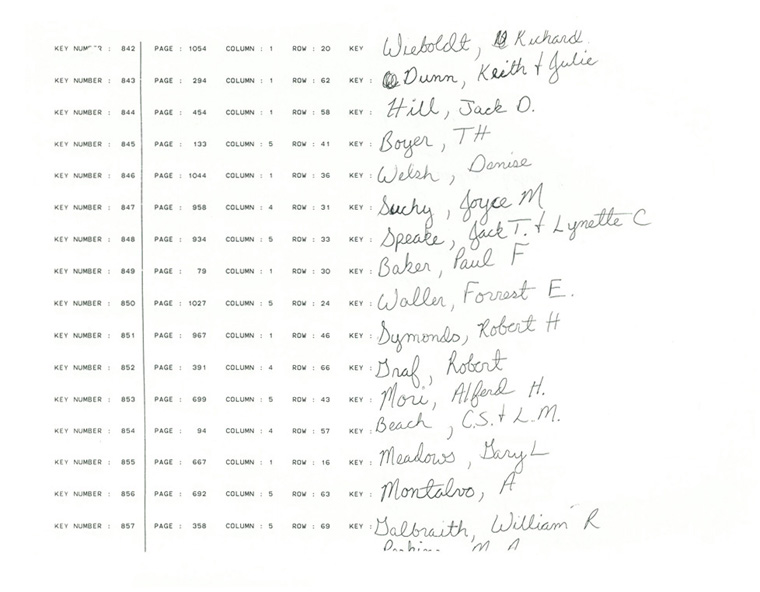 KEY NUMBER : 842 PAGE : 1054 COLUMN : 1 ROW : 20 KEY Wieboldt, Richard.
KEY NUMBER : 843 PAGE : 294 COLUMN : 1 ROW : 62 KEY : Dunn, Keith + Julie
KEY NUMBER : 844 PAGE : 454 COLUMN : 1 ROW : 58 KEY : Hill, Jack D.
KEY NUMBER : 845 PAGE : 133 COLUMN : 5 ROW : 41 KEY : Boyer, TH
KEY NUMBER : 846 PAGE : 1044 COLUMN : 1 ROW : 36 KEY : Welsh, Denise
KEY NUMBER : 847 PAGE : 958 COLUMN : 4 ROW : 31 KEY : Suchy, Joyce M
KEY NUMBER : 848 PAGE : 934 COLUMN : 5 ROW : 33 KEY : Speake, Jack T. + Lynette C
KEY NUMBER : 849 PAGE : 79 COLUMN : 1 ROW : 30 KEY : Baker, Paul F
KEY NUMBER : 850 PAGE : 1027 COLUMN : 5 ROW : 24 KEY : Waller, Forrest E.
KEY NUMBER : 851 PAGE : 967 COLUMN : 1 ROW : 46 KEY : Symonds, Robert H
KEY NUMBER : 852 PAGE : 391 COLUMN : 4 ROW : 66 KEY : Graf, Robert
KEY NUMBER : 853 PAGE : 699 COLUMN : 5 ROW : 43 KEY : Mori, Alferd H.
KEY NUMBER : 854 PAGE : 94 COLUMN : 4 ROW : 57 KEY : Beach, C.S. + L.M.
KEY NUMBER : 855 PAGE : 667 COLUMN : 1 ROW : 16 KEY : Meadows, Gary L
KEY NUMBER : 856 PAGE : 692 COLUMN : 5 ROW : 63 KEY : Montalvo, A
KEY NUMBER : 857 PAGE : 358 COLUMN : 5 ROW : 69 KEY : Galbraith, William R
M A